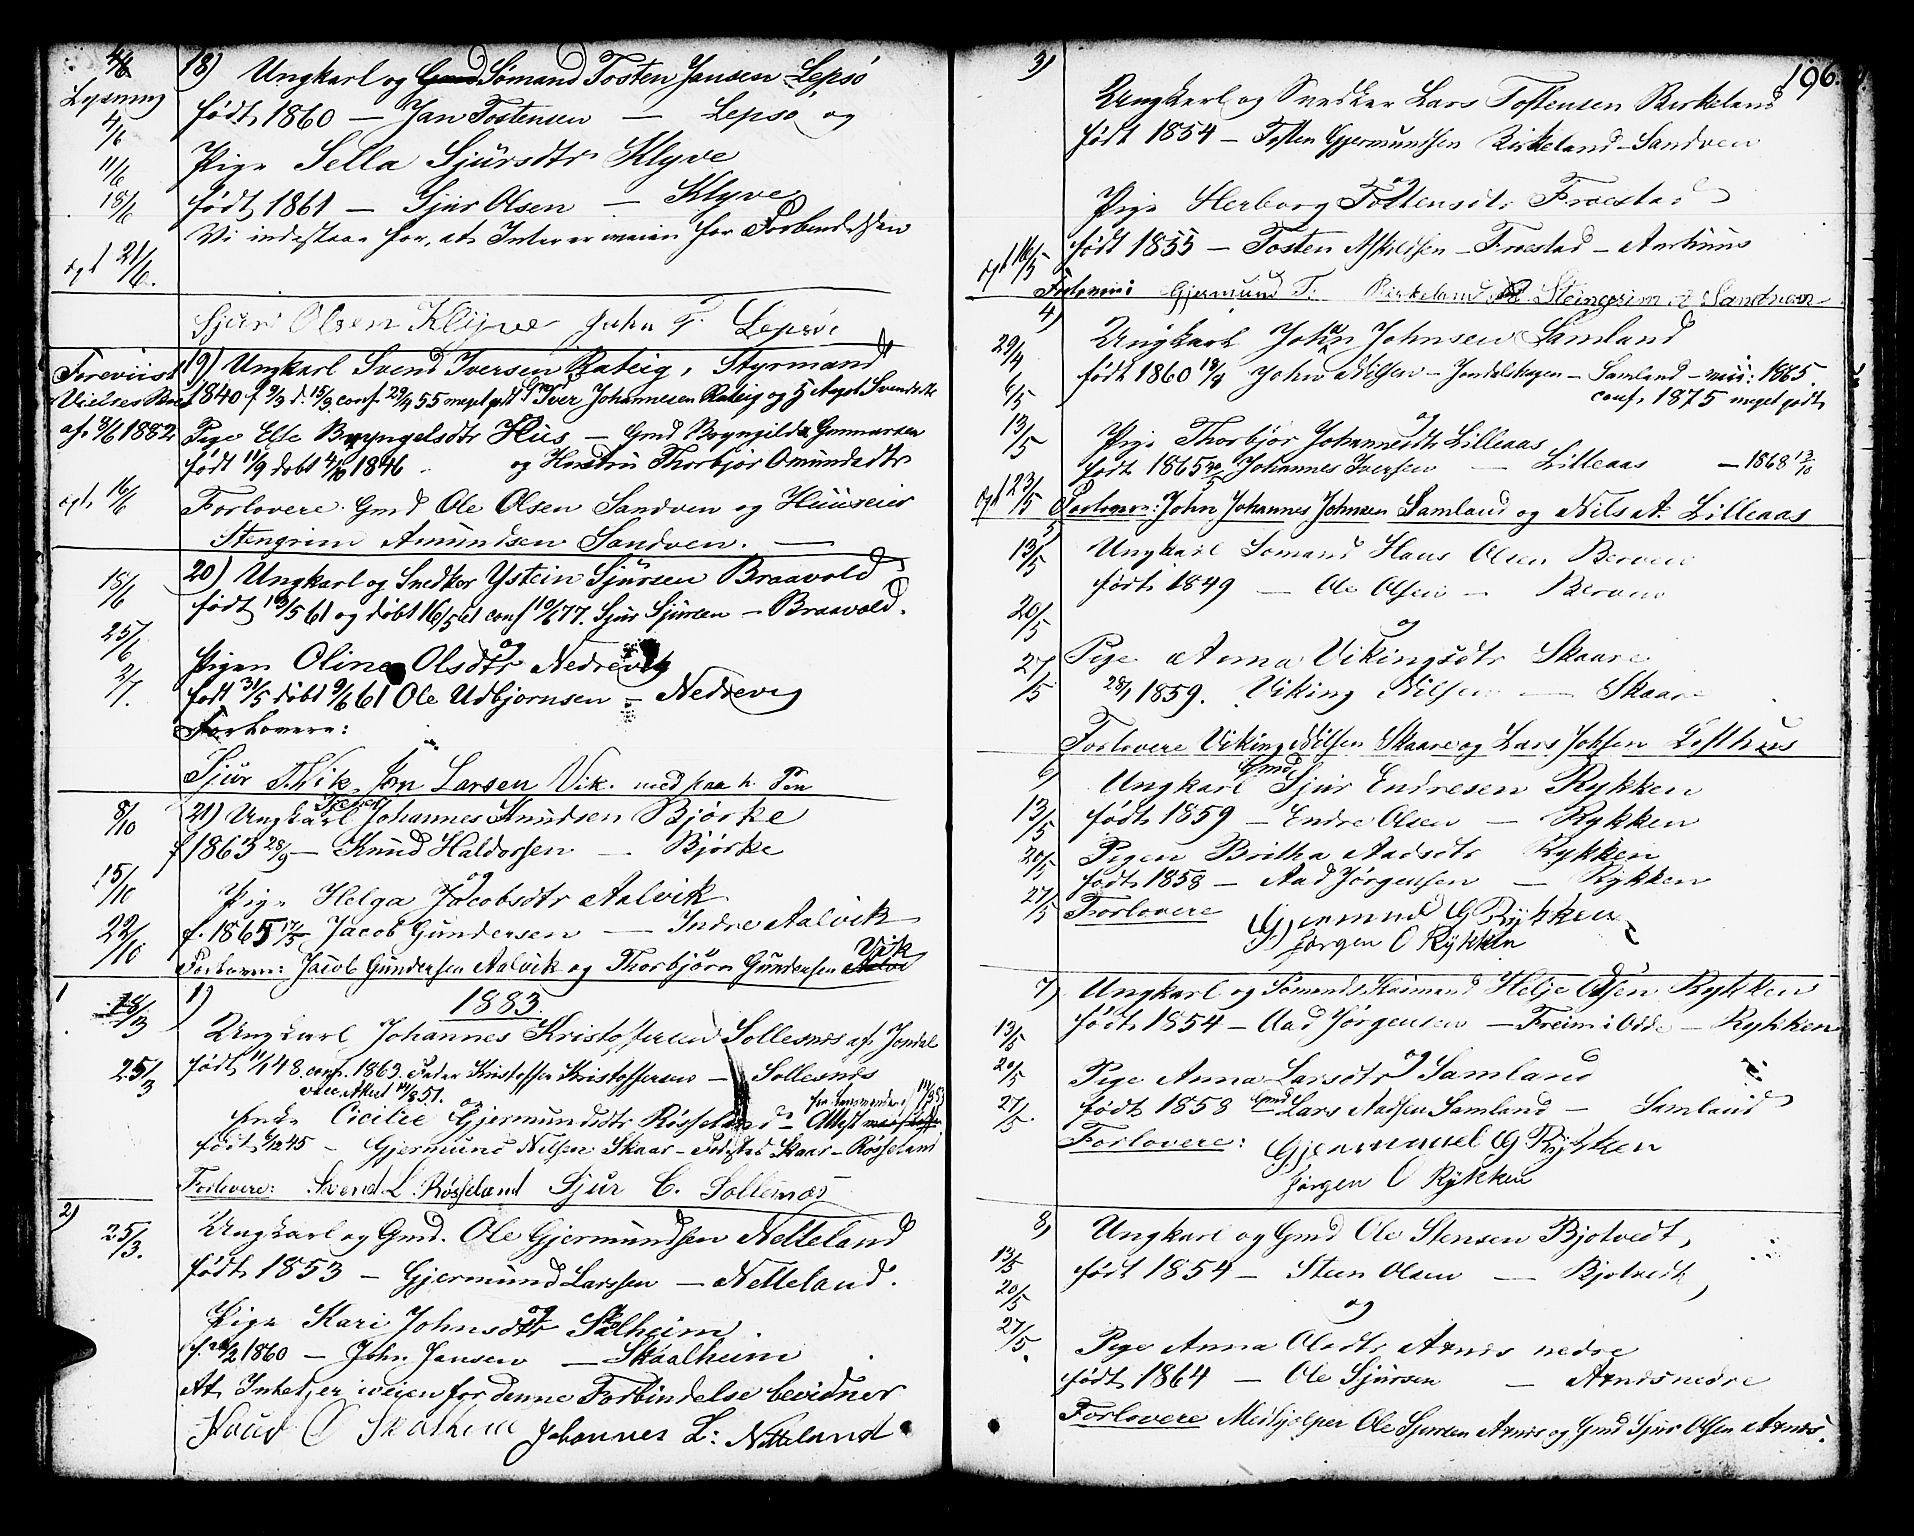 4/6
18) Ungkarl og Gmd Sømand Tosten Jansen Lepsø
Lysning
født 1860 — Jan Tostensen — Lepsø og
4/6
11/6
Pige Sella Sjursdtr Klyve
18/6
født 1861 — Sjur Olsen — Klyve
Vi indestaar for, at Intet er iveien for Forbindelsen
vgt 21/6.
Sjur Olsen Klyve John T. Lepsøe
Foreviist
19) Ungkarl Svend Iversen Rateig, Styrmand
1840 f 9/9 d. 15/9 conf. 29/4 55 meget godt Gmd Iver Johannesen Rateig og
af 8/6 1882
Pige Else Bryngelsdtr Hus — Gmd Bryngild Gunnarsen
født 11/9 døbt 4/10 1846 og Hustru Thorbjør Omundsdtr
vgt. 16/6
Forlovere Gmd Ole Olsen Sandven og Huuseier
Stengrim Amundsen Sandven. —
18/6
20) Ungkarl og Snedker Ystein Sjursen Braavold
født 13/5 61 og døbt 16/5 61 conf 10/6 77. Sjur Sjursen — Braavold.
25/6
og
Pigen Oline Olsdtr Nedrevig
2/7.
født 31/5 døbt 9/6 61 Ole Udbjørnsen — Nedrevig
Forlovere:
Sjur Vik Jon Larsen Vik. med paa h. Pen
8/10
21) Ungkarl Johannes Knudsen Bjørke
f 1863 28/9 — Knud Haldorsen — Bjørke
15/10
og
Pige Helga Jacobsdtr Aalvik
22/10
f. 1865 17/5 Jacob Gundersen — Indre Aalvik
Forlovere: Jacob Gundersen Aalvik og Thorbjørn Gundersen Vik
1
1) 1883.
18/3
Ungkarl Johannes Kristoffersen Sollesnes af Jondal
25/3
født 11/1 48. conf. 1863. Fader Kristoffer Kristoffersen — Sollesnes
vacc. Attest 14/8 51.
og
Enke Cicilie Gjermundsdtr Røsseland — Attest
født 6/12 45 — Gjermund Nilsen Skaar — Fødested Skaar — Røsseland
Forlovere: Svend L. Røsseland Sjur C. Sollesnæs
2)
25/3.
Ungkarl og Gmd. Ole Gjermundsen Netteland
født 1853 — Gjermund Larssen — Netteland.
og
Pige Kari Johnsdtr Skalheim.
f. 26/2 1860 — John Jansen — Skaalheim
At Intet er iveien for denne Forbindelse bevidner
Knud O Skalheim Johannes L: Netteland
196.
3)
Ungkarl og Snedker Lars Tostensen Birkeland
født 1854 — Tosten Gjermundsen Birkeland — Sandven
og
Pige Herborg Tostensdtr Froestad
vgt 16/5
født 1855 — Tosten Aslaksen — Froestad — Aarhuus
Forlovere: Gjermund T. Birkeland og Steingrim A Sandven
4)
29/4
Ungkarl John Johnsen Samland
født 1860 18/8 John Nilsen — Jondalskogen — Samland — vacc: 1865.
6/5
conf. 1875 meget godt
13/5
og
Pige Thorbjør Johannesdtr Lilleaas
født 1865 20/5 Johannes Iversen — Lilleaas — 1868 13/10
vgt 23/5
Forlovere: John Johannes Johnsen Samland og Nils A. Lilleaas
5)
13/5
Ungkarl Sømand Hans Olsen Berven
født 1849 — Ole Olsen — Berven
20/5
og
27/5
Pige Anna Vikingsdtr Skaare
28/1 1859. Viking Nilsen — Skaare
Forlovere Viking Nilsen Skaare og Lars Johsen Lofthus
6)
Gmd
Ungkarl Sjur Endresen Rykken
13/5
født 1859 — Endre Olsen — Rykken
20/5
Pigen Britha Aadsdtr Rykken
født 1858 — Aad Jørgensen — Rykken
27/5
Forlovere Gjermund G Rykken
Jørgen O Rykken
7)
Ungkarl og Helje Odsen Rykken
13/5
født 1854 — Aad Jørgensen — Freim i Odde — Rykken
20/5
og
Pige Anna Larsdtr Samland
27/5
født 1858 Gmd Lars Aadsen Samland — Samland
Forlovere: Gjermund G Rykken
Jørgen O Rykken
8)
Ungkarl og Gmd Ole Stensen Bjotvedt,
13/5
født 1854 — Steen Olsen — Bjotvedt,
20/5
og
27/5.
Pige Anna Olsdtr Axnes nedre
født 1864 — Ole Sjursen — Axnes nedre
Forlovere Medhjelper Ole Sjursen Axnes og Gmd Sjur Olsen Axnes.